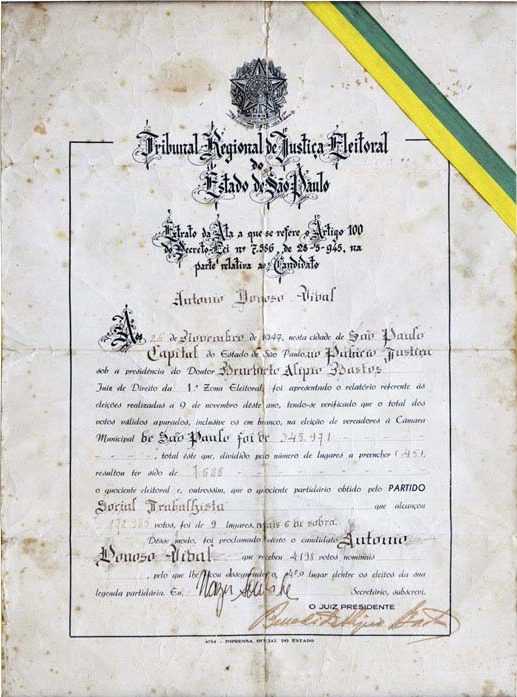 Tribunal Regional de Justiça Eleitoral
do
Estado de São Paulo
Extrato da Ata a que se refere o Artigo 100
do Decreto-Lei nº 7.586, de 28-5-945, na
parte relativa ao Candidato
Antonio Donoso Vidal
A 26 de Novembro de 1947, nesta cidade de São Paulo
Capital do Estado de São Paulo, no Palacio Justiça
sob a presidência do Doutor Benedicto Alipio Bastos
Juiz de Direito da 1.ª Zona Eleitoral, foi apresentado o relatório referente às
eleições realizadas a 9 de novembro dêste ano, tendo-se verificado que o total dos
votos válidos apurados, inclusive os em branco, na eleição de vereadores à Câmara
Municipal de São Paulo foi de 345.971
, total êste que, dividido pelo número de lugares a preencher (45),
resultou ter sido de 7.688
o quociente eleitoral e, outrossim, que o quociente partidário obtido pelo PARTIDO
Social Trabalhista que alcançou
votos, foi de 9 lugares, mais 6 de sobra.
Dêsse modo, foi proclamado eleito o candidato Antonio
Donoso Vidal que recebeu 4198 votos nominais
, pelo que lhe ficou assegurado o 4º lugar dentre os eleitos da sua
legenda partidária. Eu, Secretário, subscrevi.
O JUIZ PRESIDENTE
Benedicto Alipio Bastos
4784 - IMPRENSA OFICIAL DO ESTADO